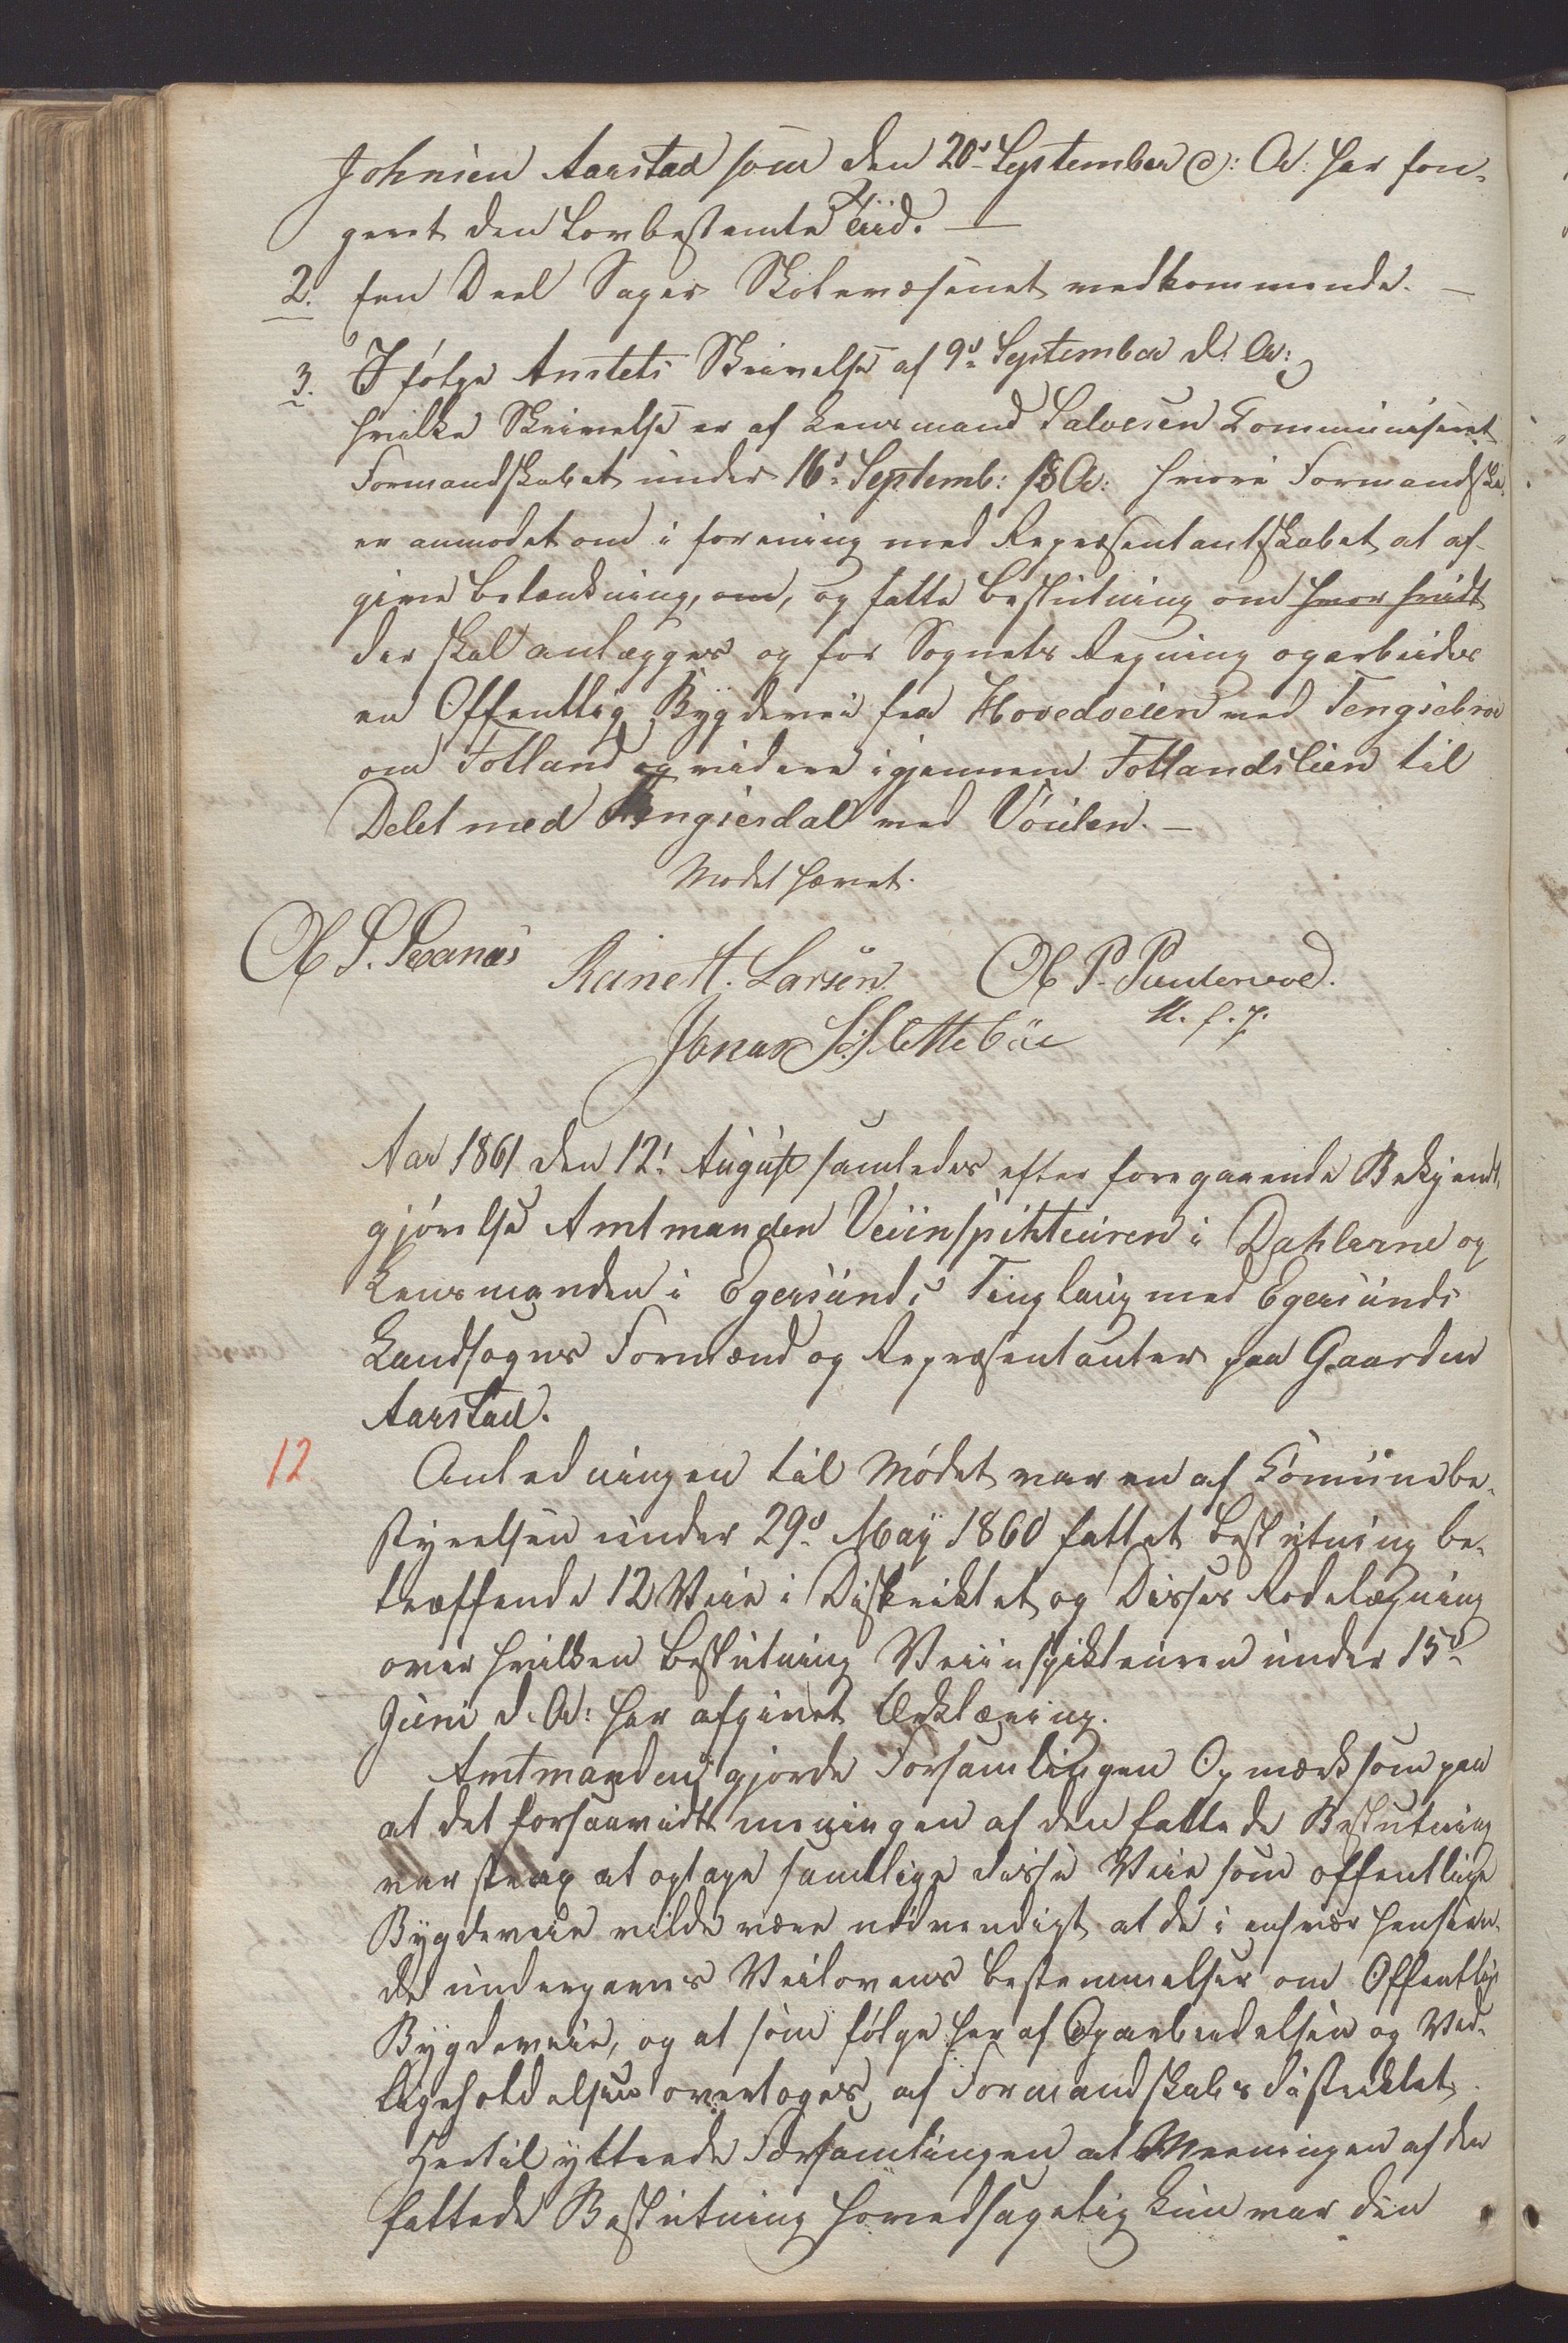 Johnsen Aarstad som den 20de September d: A: har fon-
geret den Lovbestemte Tiid. —
2. Een Deel Sager Skolevæsenet vedkommende. —
3. I følge Amtets Skrivelse af 9de September d: A:,
hvilke Skrivelse er af Lensmand Salvesen Communiseret
Formandskabet under 16de Septemb: s: A: hvori Formandska.
er anmodet om i forening med Repræsentantskabet at af-
give betænkning, om, og fatte beslutning om hvor hvidt
der skal anlægges og for Sognets Regning oparbeides
en Offentlig Bygdevei fra Hovedveien ved Tengsebroe
om Fotland og videre igjennem Fotlandslien til
Delet med Tengsesdal ved
Mødet hævet.
Ol S. Svanæs Reinert. Larsen Ol P. Puntervod.
M. f. P.
Jonas S: Slettebøe
Aar 1861 den 12te August samledes efter foregaaende Bekjendt,
gjørelse Amtmanden Veiinspikteuren i Dahlerne og
Lensmanden i Egersunds Tinglaug med Egersunds
Landsogns Formænd og Repræsentanter paa Gaarden
Aarstad.
12 Anledningen til Mødet var en af Comunebe-
styrelsen under 29de May 1860 fattet beslutning be-
træffende 12 Veie i Distriktet og Disses Rodelægning
over hvilken beslutning Veiinspikteuren under 15de
Juni d. A: har afgivet Erklæring.
Amtmanden gjorde Forsamlingen Opmærksom paa
at det forsaavidt meningen af den fattede Beslutning
var strax at optage samtlige disse Veie som offentlige
Bygdeveie vilde være nødvendigt at de i enhver henseen-
de undergaves Veilovens bestemmelser om Offentlige
Bygdeveie, og at som følge heraf Oparbeidelsen og Ved-
ligeholdelsen overtoges af Formandskabsdistriktet.
Hertil yttrede Forsamlingen at Meeningen af den
fattede Beslutning hovedsagelig kun var den